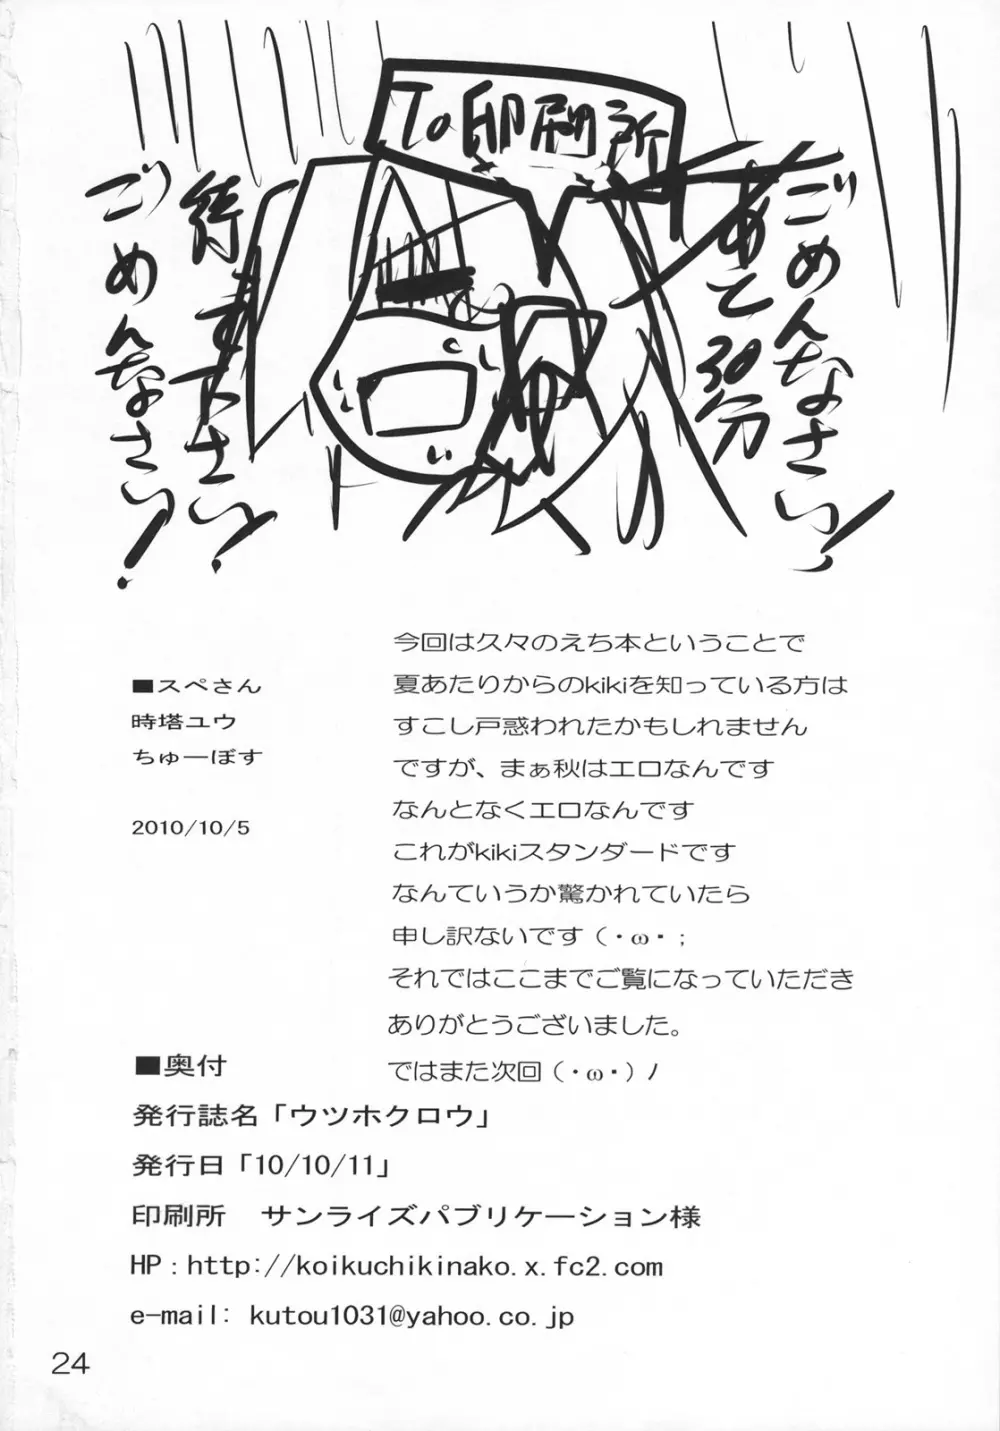 To 印刷所
ごめんなさい!
あと30分
待って下さい!
ごめんなさい!
今回は久々のえち本ということで
夏あたりからのkikiを知っている方は
すこし戸惑われたかもしれません
ですが、まぁ秋はエロなんです
なんとなくエロなんです
これがkikiスタンダードです
なんていうか驚かれていたら
申し訳ないです（・ω・；
それではここまでご覧になっていただき
ありがとうございました。
ではまた次回（・ω・）ﾉ
■スペさん
時塔ユウ
ちゅーぼす
2010/10/5
■奥付
発行誌名「ウツホクロウ」
発行日「10/10/11」
印刷所　サンライズパブリケーション様
HP：http://koikuchikinako.x.fc2.com
e-mail: kutou1031@yahoo.co.jp
24